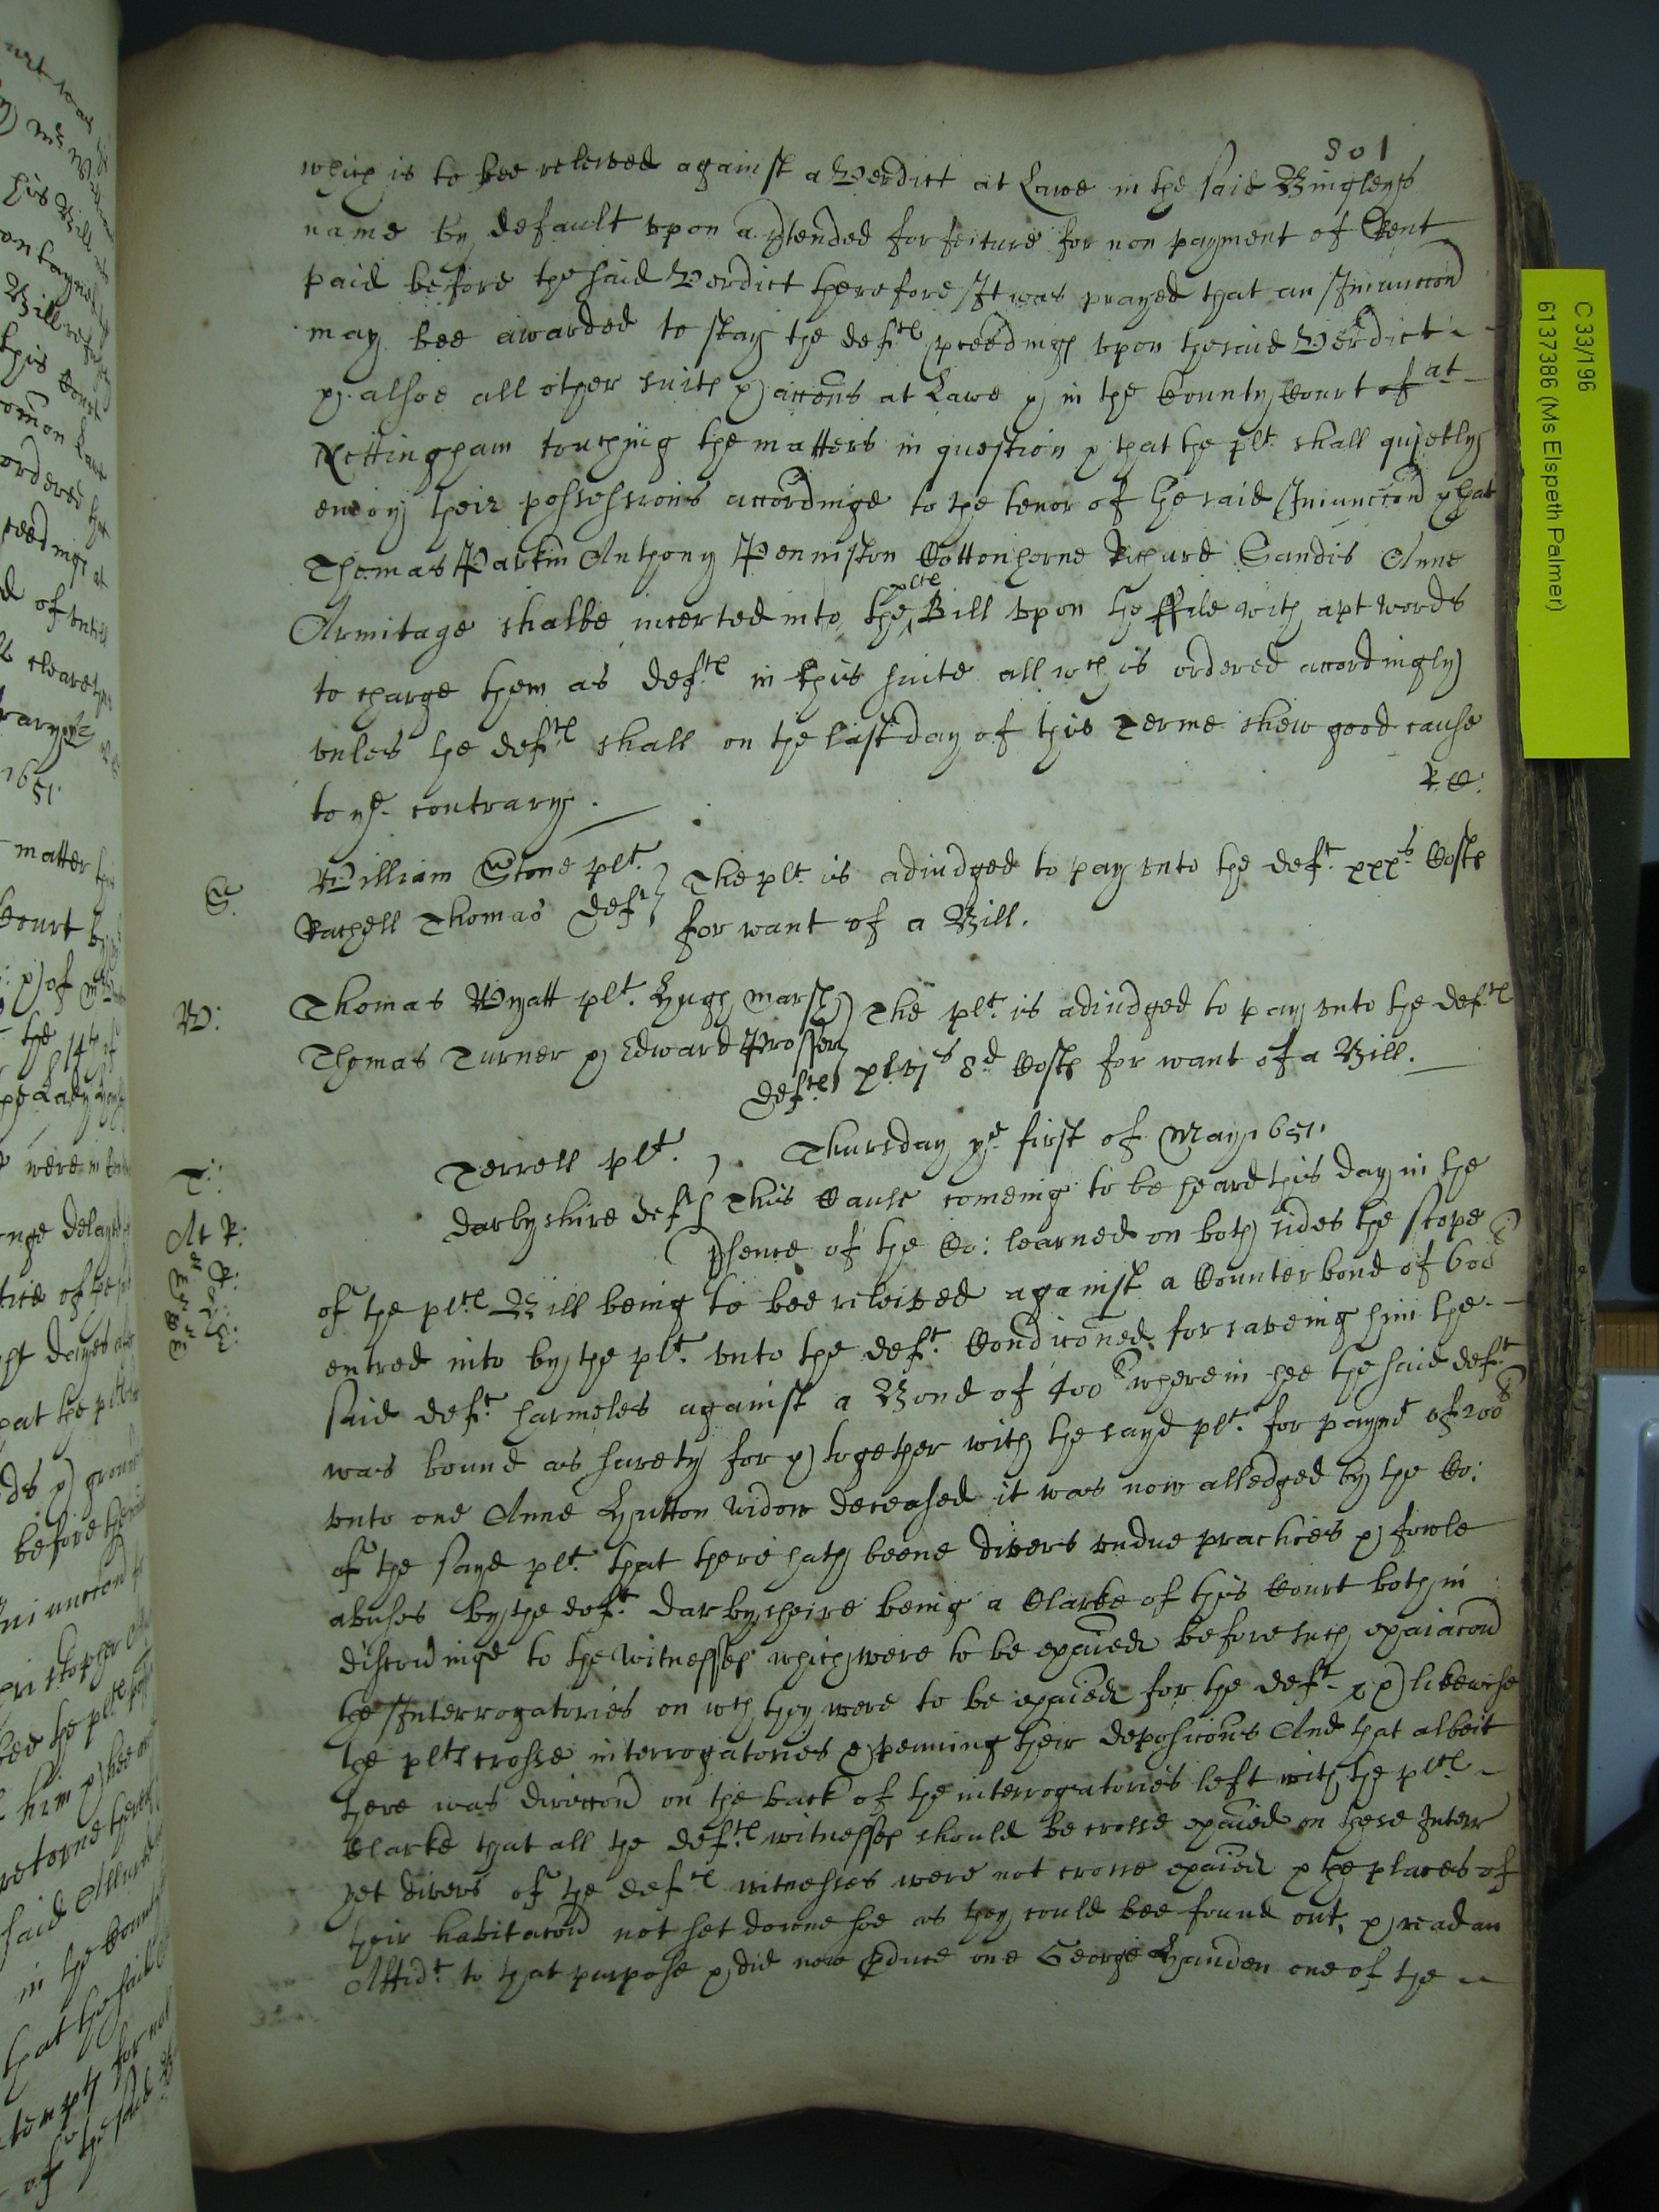 801
which is to bee releived against a Verdict at Lawe in the said Bingleys
name by default vpon a p̱tended forfeiture for non payment of Rent
paid before the said Verdict therefore It was prayed that an Iniunccon
may bee awarded to stay the def.tes p̱ceedings vpon the said Verdict
& alsoe all other suits & accons at Lawe & in the County Court of at
Nottingham touching the matters in question & that the pl.t shall quietly
enioy their possessions accordinge to the tenor of the said Iniunccon & that
Thomas Parkin Anthony Penniston Cottonhorne Richard Sandis Anne
Armitage shalbe incerted into the pltes Bill vpon the ffile with apt words
to charge them as def.tes in this suite all wch is ordered accordingly
vnles the def.tes shall on the last day of this Terme shew good cause
to ye contrary.
R.C:
S.
William Stone pl.t
Rachell Thomas def.t
The pl.t is adiudged to pay vnto the def.t xxx.s Costs
for want of a Bill.
W:
Thomas Wyatt pl.t Hugh Marsh
Thomas Turner & Edward Prosser
def.tes
The pl.t is adiudged to pay vnto the def.tes
xlvj.s 8.d Costs for want of a Bill.
Thursday ye first of May 1651.
T:
Terrell pl.t
Darbyshire def.t
This Cause comeing to be heard this day in the
At R:
p̱sence of the Co: learned on both sides the scope
of the pl.tes Bill being to bee releived against a Counterbond of 600
entred into by the pl.t vnto the def.t Condiconed for saveing him the
said def.t harmeles against a Bond of 400 wherein hee the said def.t
was bound as surety for & together with the sayd pl.t for paymt of 200
vnto one Anne Hutton widow deceased it was now alledged by the Co:
of the sayd pl.t that there hath beene divers vndue practices & fowle
abuses by the def.t Darbysheire being a Clarke of this Court both in
discouinge to the Witnesses which were to be exaied before such exaiacon
the Interrogatories on wch they were to be exaied for the def.t & likewise
the pltes crosse interrogatories & penning their deposicons And that albeit
there was direccon on the back of the interrogatories left with the pl.tes
Clarke that all the def.tes witnesses should be crosse exaied on these Interr
yet divers of the def.tes witnesses were not crosse exaied & the places of
their habitacon not set downe soe as they could bee found out, & read an
Affid.t to that purpose & did now p̱duce one George Handen one of the
C 33/196
6137386 (Ms Elspeth Palmer)